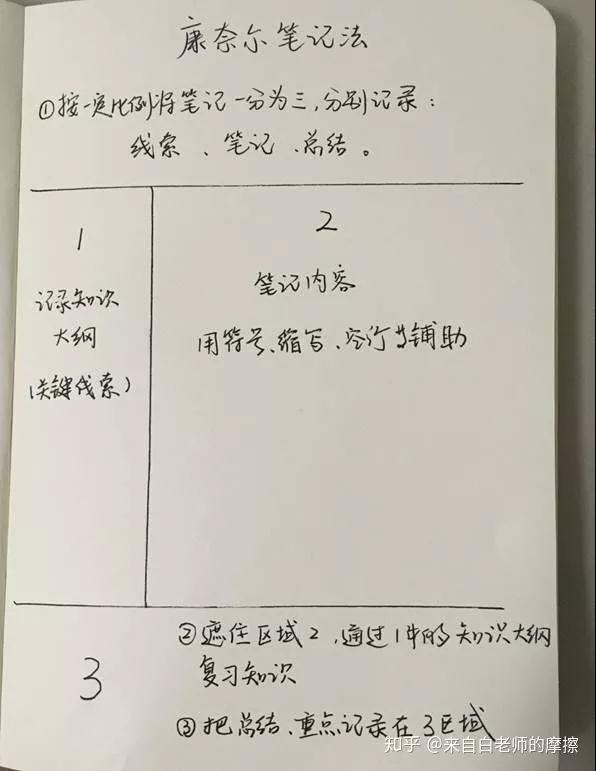 康奈尔笔记法
①按一定比例将笔记一分为三,分别记录:
线索、笔记、总结。
1
记录知识
大纲
(关键线索)
2
笔记内容
用符号、缩写、空行等辅助
3
②遮住区域2,通过1中的知识大纲
复习知识
③把总结、重点记录在3区域
知乎 @来自白老师的摩擦